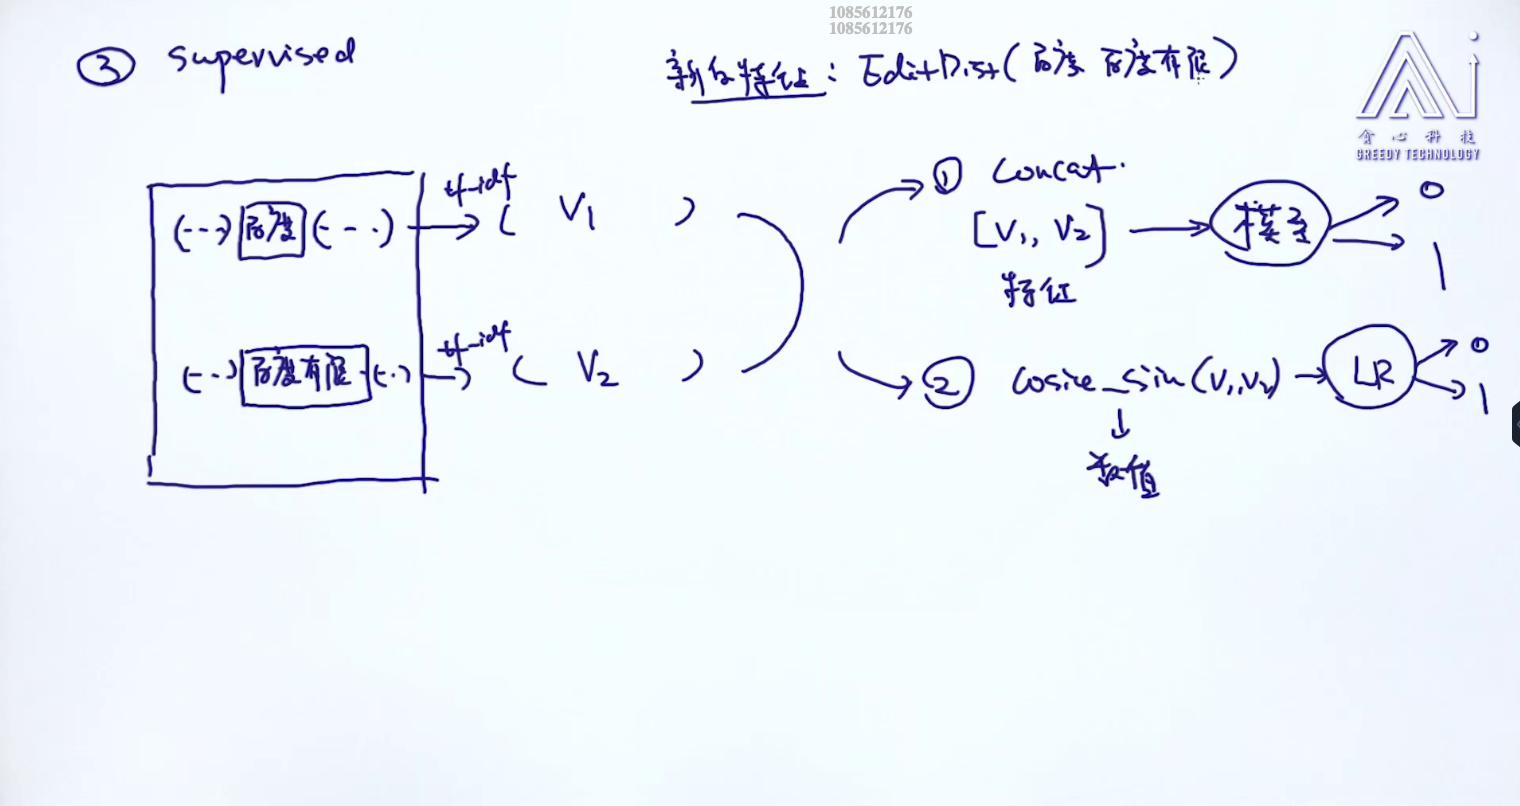 1085612176
1085612176
③ supervised
新的特征: EditDist(百度 百度有限)
贪心科技
GREEDY TECHNOLOGY
(- - -) 百度 (- - ·) tf-idf ( V1 )
(- ··) 百度有限 (- ·) tf-idf ( V2 )
① Concat.
[V1, V2]
特征
模型
0
1
② cosine_sim(V1,V2)
数值
LR
0
1